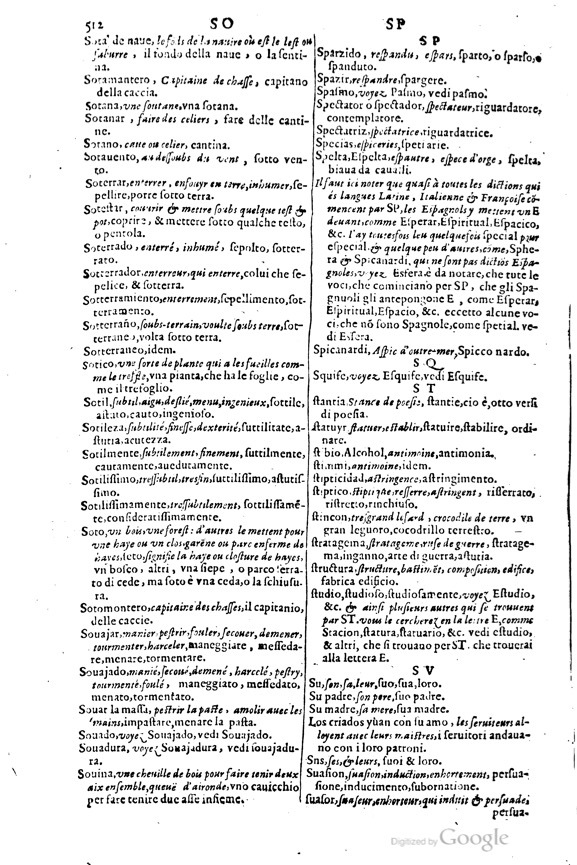 512 SO SP
Sota' de naue, le fods de la nauire où est le lest ou
saburre, il fondo della naue, o la senti-
na.
Sotamantero, Capitaine de chasse, capitano
della caccia.
Sotana, vne soutane, vna sotana.
Sotanar, faire des celiers, fare delle canti-
ne.
Sotano, caue ou celier, cantina.
Sotauento, au dessoubs du vent, sotto ven-
to.
Soterrar, enterrer, enfouyr en terre, inhumer, se-
pellire, porre sotto terra.
Sotestar, couurir & mettre soubs quelque test &
pot, coprire, & mettere sotto qualche testo,
o pentola.
Soterrado, enterré, inhumé, sepolto, sotter-
rato.
Soterrador, enterreur, qui enterre, colui che se-
pelice, & sotterra.
Soterramiento, enterrement, sepellimento, sot-
terramento.
Soterraño, soubs-terrain, voulte soubs terre, sot-
terrane, volta sotto terra.
Soterraneo, idem.
Sotico, vne sorte de plante qui a les fueilles com-
me le treffle, vna pianta, che ha le foglie, co-
me il trefoglio.
Sotil, subtil, aigu, deslié, menu, ingenieux, sottile,
astuto, cauto, ingenioso.
Sotileza, subtilité, finesse, dexterité, suttilitate, a-
stutia, acutezza.
Sotilmente, subtilement, finement, suttilmente,
cautamente, auedutamente.
Sotilissimo, tressubtil, tresfin, suttilissimo, astutis-
simo.
Sotilissimamente, tressubtilement, sottilissamē-
te, consideratissimamente.
Soto, vn bois, vne forest: d'autres le mettent pour
vne haye ou vn clos, garéne ou parc enferme de
hayes, seto, signifie la haye ou closture de hayes,
vn bosco, altri, vna siepe, o parco serra-
to di cede, ma soto è vna ceda, o la schiusu-
ra.
Sotomontero, capitaine des chasses, il capitanio,
delle caccie.
Souajar, manier, pestrir, fouler, secouer, demener,
tourmenter, harceler, maneggiare, messeda-
re, menare, tormentare.
Souajado, manié, secoué, demené, harcelé, pestry,
tourmenté, foulé, maneggiato, messedato,
menato, tormentato.
Souar la massa, pestrir la paste, amolir auec les
mains, impastare, menare la pasta.
Souado, voyez Souajado, vedi Souajado.
Souadura, voyez Souajadura, vedi souajadu-
ra.
Souina, vne cheuille de bois pour faire tenir deux
aix ensemble, queuë d'aironde, vno cauicchio
per fare tenire due asse insieme.
SP
Sparzido, respandu, espars, sparto, o sparso, o
spanduto.
Spazir, respandre, spargere.
Spasmo, voyez Pasmo, vedi pasmo.
Spectator o spectador, spectateur, riguardatore,
contemplatore.
Spectatriz, spectatrice, riguardatrice.
Specias, espiceries, spetiarie.
Spelta, Espelta, espautre, espece d'orge, spelta,
biaua da caualli.
Il faut ici noter que quasi à toutes les dictions qui
és langues Latine, Italienne & Françoise cō-
mencent par SP, les Espagnols y mettent vn E
deuant, comme Esperar, Espiritual, Espacico,
&c. J'ay toutesfois leu quelquefois special pour
especial. & quelque peu d'autres, comme, Sphe-
ra & Spicanardi, qui ne sont pas dictiōs Espa-
gnoles, voyez Esfera. è da notare, che tute le
voci, che cominciano per SP, che gli Spa-
gnuoli gli antepongone E, come Esperar,
Espiritual, Espacio, &c. eccetto alcune vo-
ci, che nō sono Spagnole, come spetial. ve-
di Esfera.
Spicanardi, Aspic d'outre-mer, Spicco nardo.
SQ
Squife, voyez Esquife, vedi Esquife.
ST
stantia, Stance de poesie, stantie, cio è, otto versi
di poesia.
statuyr, statuer, establir, statuire, stabilire, ordi-
nare.
stibio, Alcohol, antimoine, antimonia.
stimmi, antimoine, idem.
stipticidad, astringence, astringimento.
stiptico, stiptique, resserre, astringent, risserrato,
ristretto, rinchiuso.
stincon, tresgrand lisard, crocodile de terre, vn
gran leguoro, cocodrillo terrestro.
stratagema, stratageme, ruse de guerre, stratage-
ma, inganno, arte di guerra, astutia.
structura, structure, bastimēt, composition, edifice,
fabrica edificio.
studio, studioso, studiosamente, voyez Estudio,
&c. & ainsi plusieurs autres qui se trouuent
par ST. vous le cercherez en la lettre E, comme
Stacion, statura, statuario, &c. vedi estudio,
& altri, che si trouauo per ST. che trouerai
alla lettera E.
SV
Su, son, sa, leur, suo, sua, loro.
Su padre, son pere, suo padre.
Su madre, sa mere, sua madre.
Los criados yūan con su amo, les seruiteurs al-
loyent auec leurs maistres, i seruitori andaua-
no con i loro patroni.
Sns, ses, & leurs, suoi & loro.
Suasion, suasion, induction, enhortement, persua-
sione, inducimento, subornatione.
suasor, suaseur, enhorteur, qui induit & persuade,
persua-
Digitized by Google